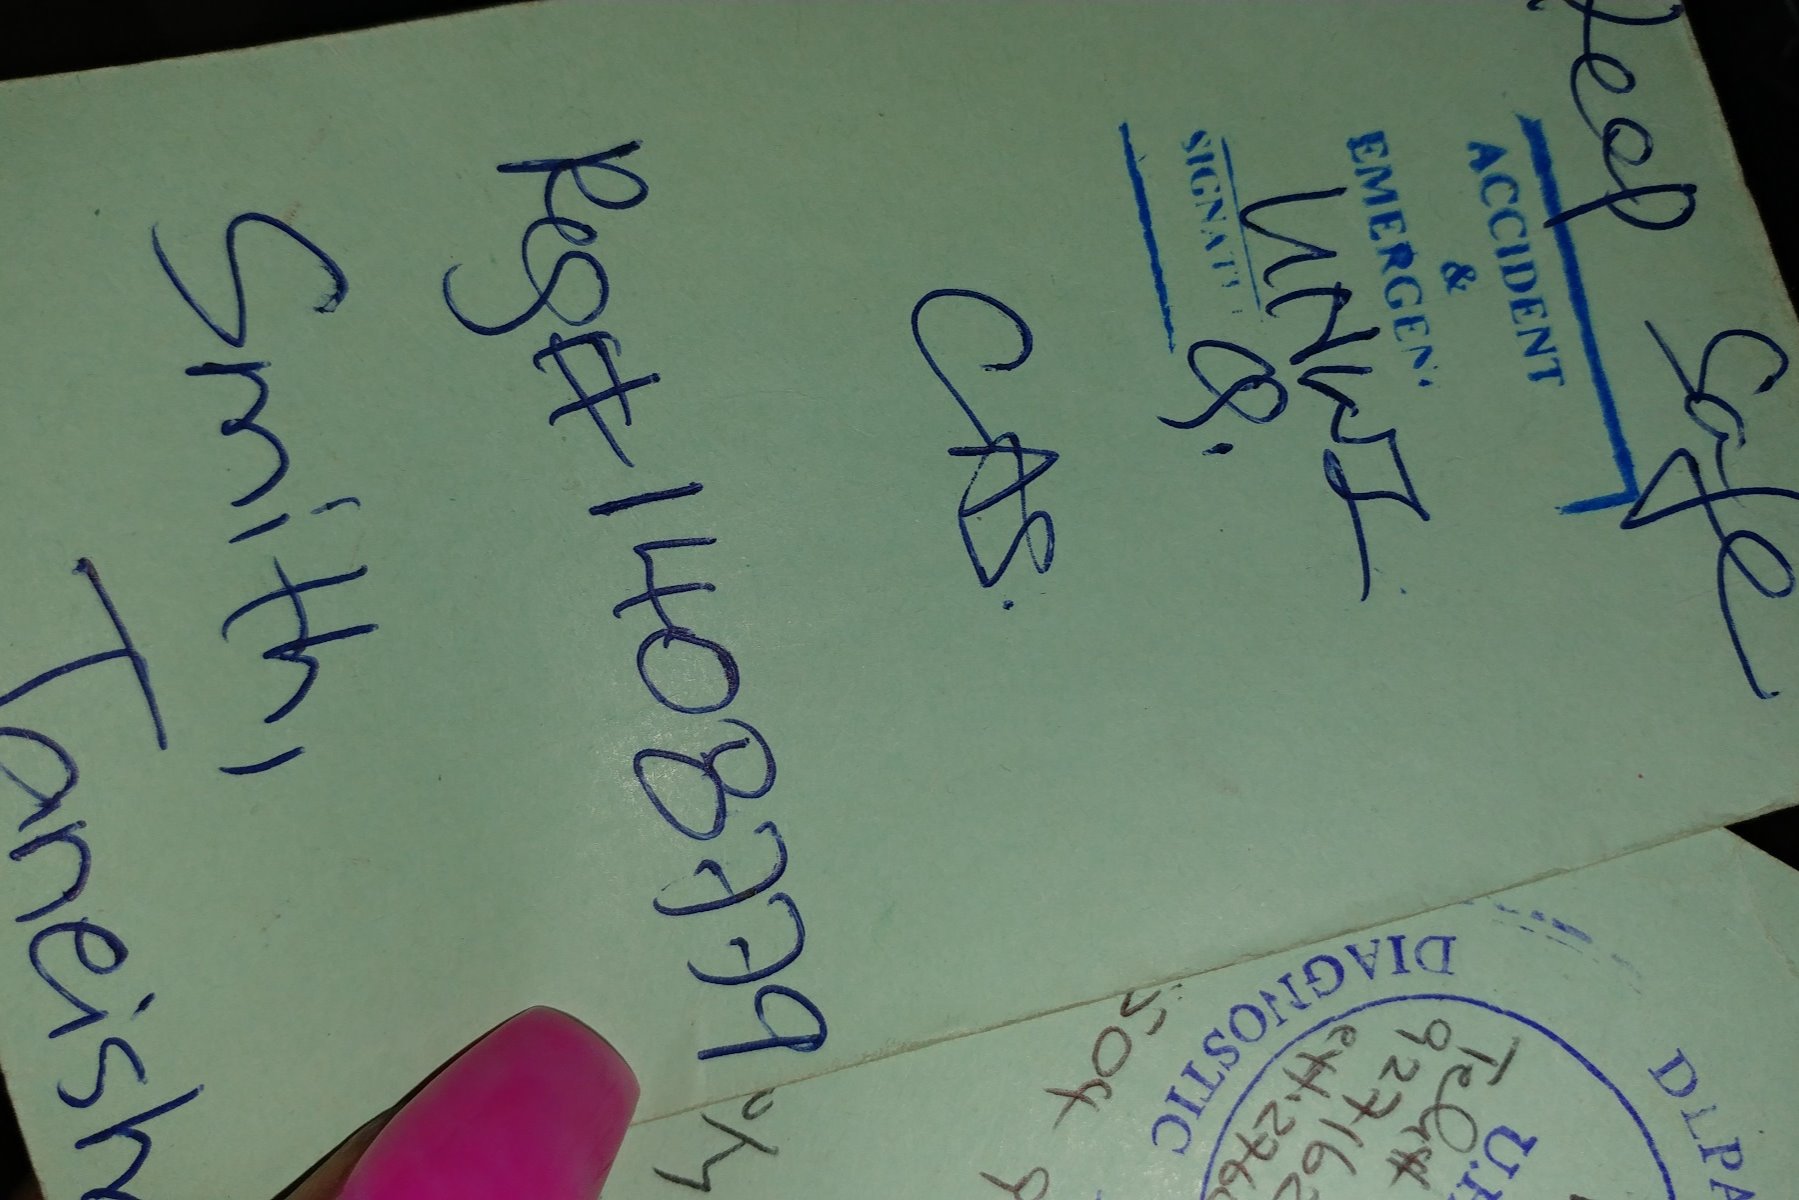 Keep Safe
ACCIDENT
&
EMERGEN
SIGNATU
CAS.
Reg# 1408779
Smith,
Taneish
DIAGNOSTIC
Tel#
927162
ext.276
504